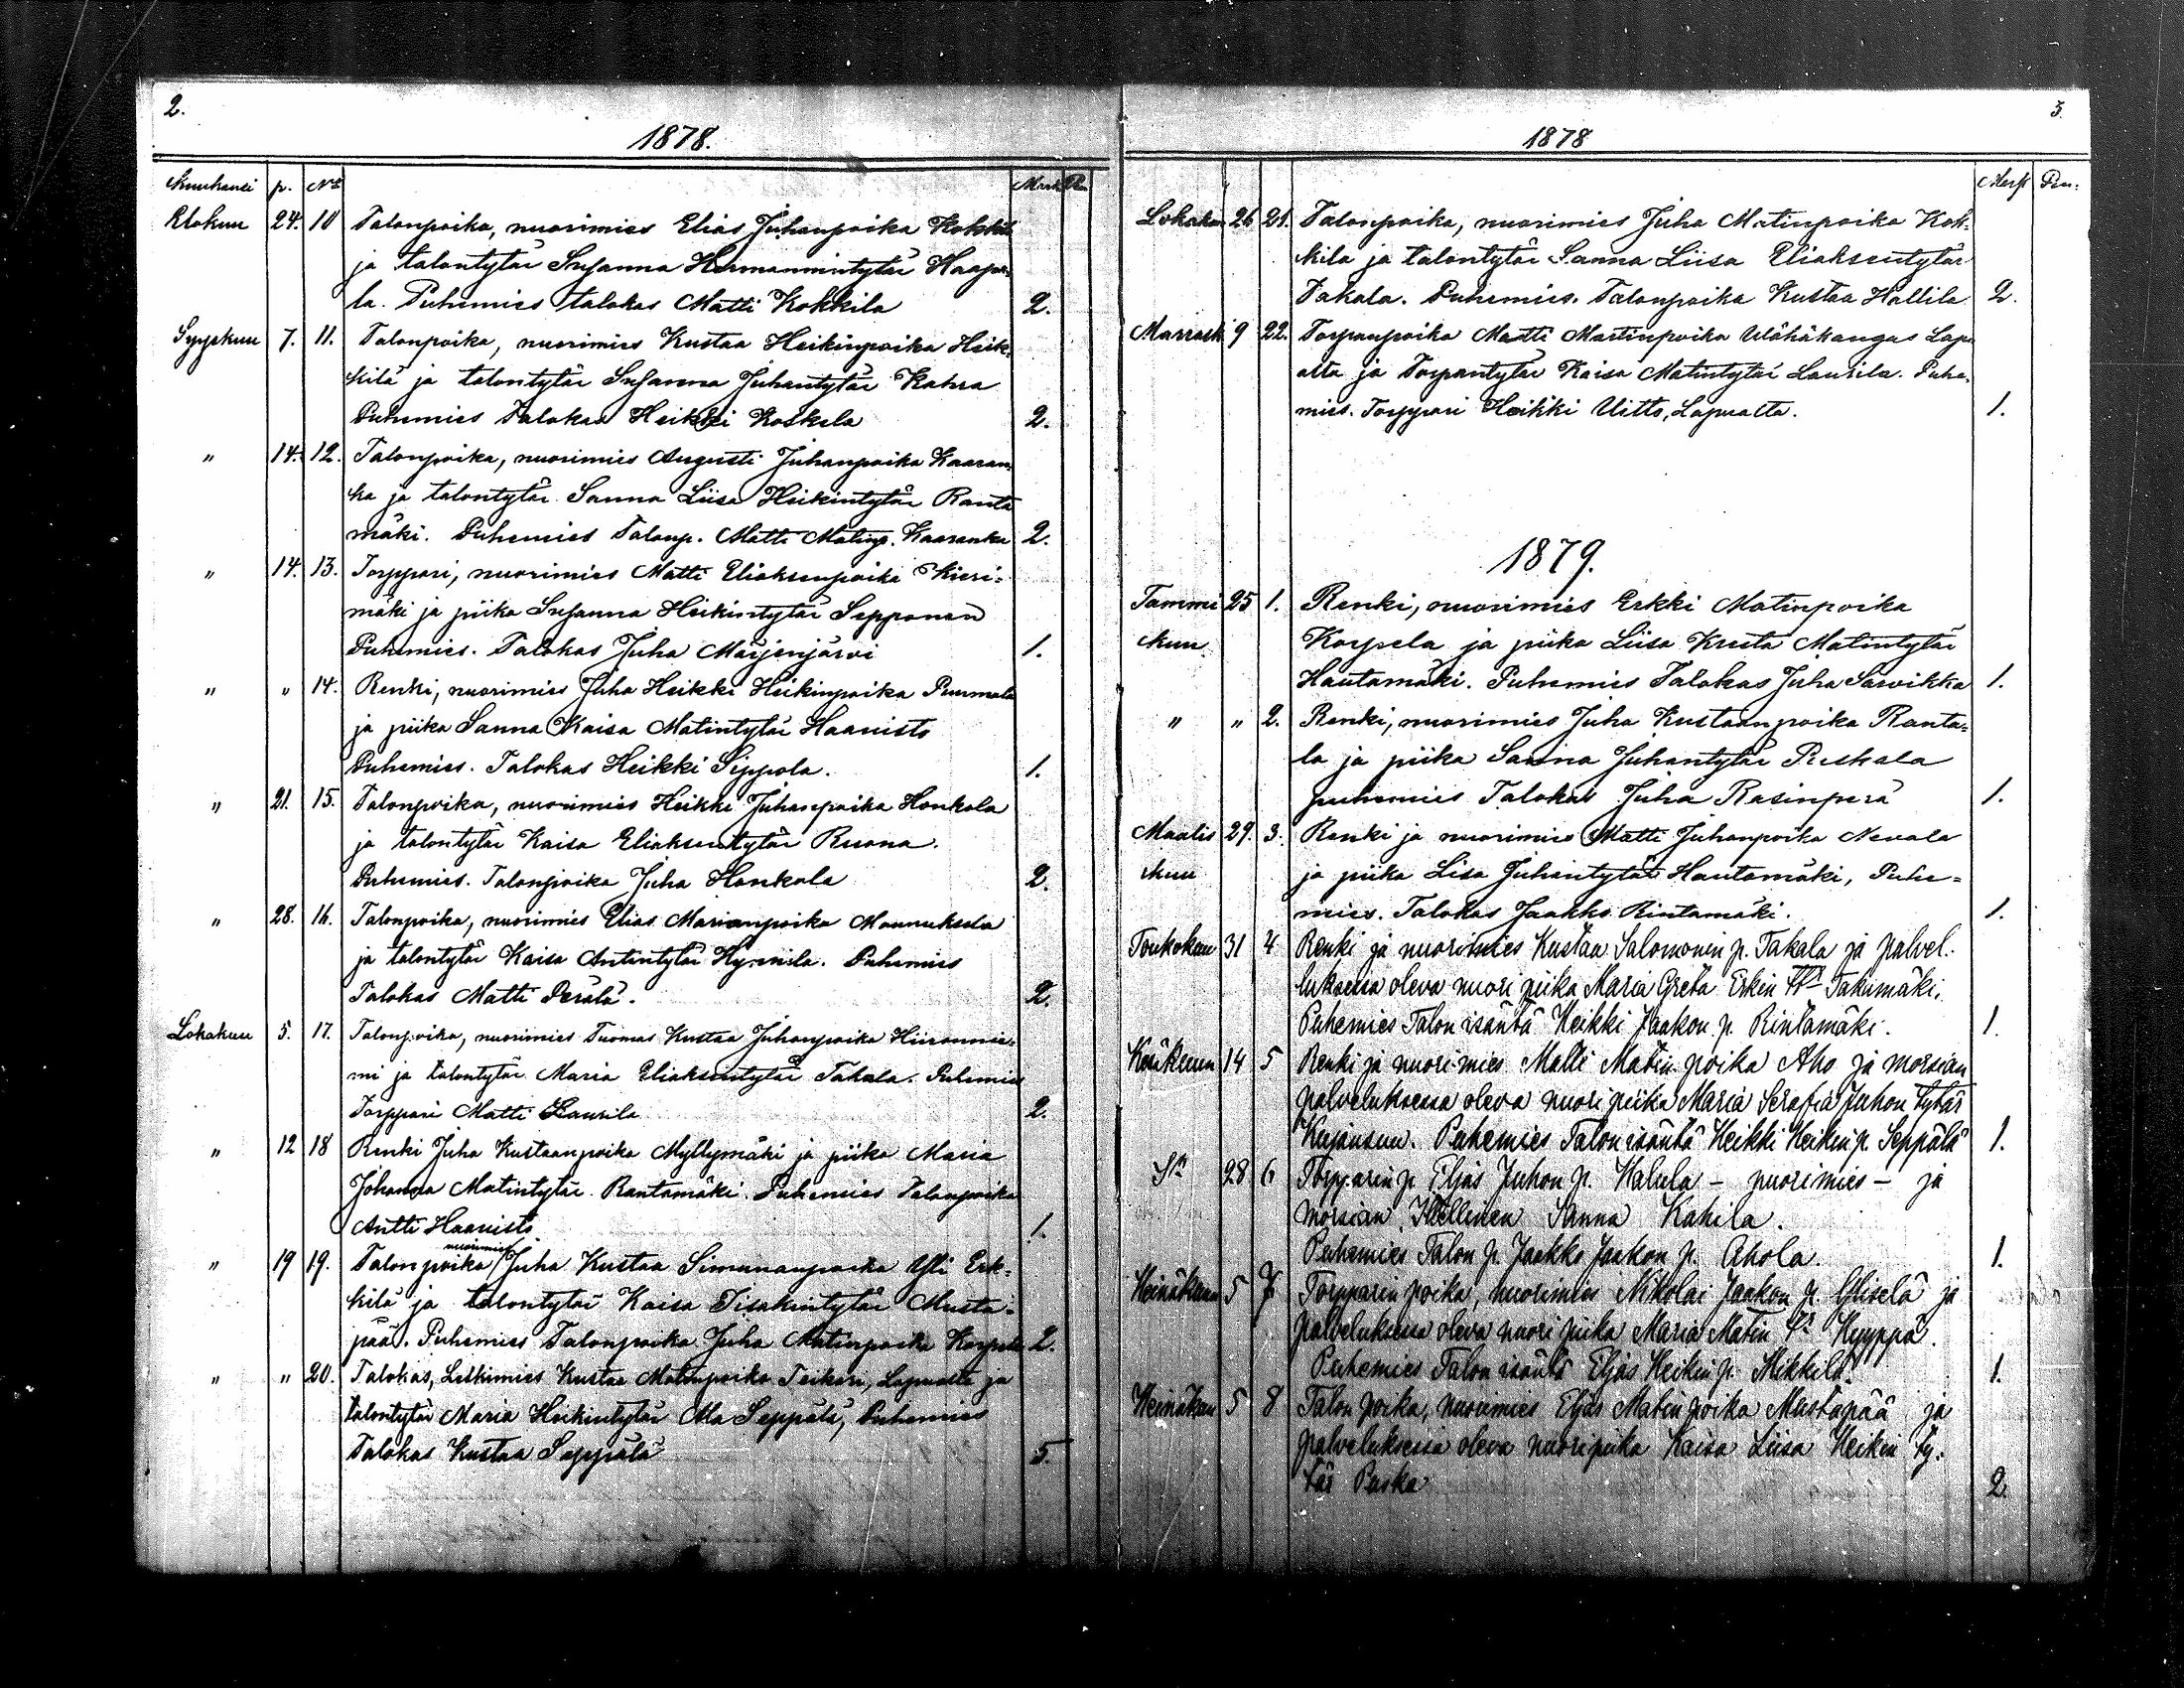 2.
1878.
Kuukausi p. No Mark. Pen.
Elokuu 24. 10 Talonpoika, nuorimies Elias Juhanpoika Kokkila
ja talontytär Susanna Hermannintytär Haapa-
la. Puhemies talokas Matti Kokkila 2.
Syyskuu 7. 11. Talonpoika, nuorimies Kustaa Heikinpoika Heik-
kilä ja talontytär Susanna Juhantytär Kahra
Puhemies Talokas Heikki Koskela 2.
" 14. 12. Talonpoika, nuorimies Augusti Juhanpoika Kaaran-
ka ja talontytär Sanna Liisa Heikintytär Ranta
mäki. Puhemies Talonp. Matti Matinp. Kaaranka 2.
" 14. 13. Torppari, nuorimies Matti Eliaksenpoika Kieri-
mäki ja piika Susanna Heikintytär Sepponen
Puhemies. Talokas Juha Marjenjärvi 1.
" " 14. Renki, nuorimies Juha Heikki Heikinpoika Puurmala
ja piika Sanna Kaisa Matintytär Haanisto
Puhemies. Talokas Heikki Sippola. 1.
" 21. 15. Talonpoika, nuorimies Heikki Juhanpoika Honkola
ja talontytär Kaisa Eliaksentytär Ruona.
Puhemies. Talonpoika Juha Honkola 2.
" 28. 16. Talonpoika, nuorimies Elias Marianpoika Maunuksela
ja talontytär Kaisa Antintytär Hynnilä. Puhemies
Talokas Matti Perälä. 2.
Lokakuu 5. 17. Talonpoika, nuorimies Tuomas Kustaa Juhanpoika Hiironnie-
mi ja talontytär Maria Eliaksentytär Takala. Puhemies
Torppari Matti Laurila 2.
" 12 18 Renki Juha Kustaanpoika Myllymäki ja piika Maria
Johanna Matintytär Rantamäki. Puhemies Talonpoika
Antti Haanisto 1.
nuorimies
" 19 19. Talonpoika Juha Kustaa Simunanpoika Yli Erk-
kilä ja talontytär Kaisa Iisakintytär Musta-
pää. Puhemies Talonpoika Juha Matinpoika Korpela 2.
" " 20. Talokas, Leskimies Kustaa Matinpoika Teikari, Lapualta ja
talontytär Maria Heikintytär Ala Seppälä, Puhemies
Talokas Kustaa Seppälä 5.
3.
1878
Mark Pen.
Lokakuu 26 21. Talonpoika, nuorimies Juha Matinpoika Kok-
kila ja talontytär Sanna Liisa Eliaksentytär
Takala. Puhemies. Talonpoika Kustaa Hallila 2.
Marrask 9 22. Torpanpoika Matti Martinpoika Wähäkangas Lapu
alta ja Torpantytär Kaisa Matintytär Laurila. Puhe-
mies. Torppari Heikki Uitto, Lapualta. 1.
1879.
Tammi 25 1. Renki, nuorimies Erkki Matinpoika
kuu Korpela ja piika Liisa Kreeta Matintytär
Hautamäki. Puhemies Talokas Juha Sarvikka 1.
" " 2. Renki, nuorimies Juha Kustaanpoika Ranta-
la ja piika Sanna Juhantytär Peskala
puhemies Talokas Juha Rasinperä 1.
Maalis 29. 3. Renki ja nuorimies Matti Juhanpoika Nevala
kuu ja piika Lisa Juhantytär Hautamäki, Puhe-
mies. Talokas Jaakko Rintamäki. 1.
Toukokuu 31 4 Renki ja nuorimies Kustaa Salomonin p. Takala ja palvel-
luksessa oleva nuori piika Maria Greta Erkin Takamäki,
Puhemies Talon isäntä Heikki Jaakon p. Rintamäki. 1.
Kesäkuun 14 5 Renki ja nuorimies Matti Matin poika Aho ja morsian
palveluksessa oleva nuori piika Maria Serafia Juhon tytär
Kujansuu. Puhemies Talon isäntä Heikki Heikin p. Seppälä 1.
28 6 Torpparin p Eljas Juhon p. Halula - nuorimies - ja
morsian Itellinen Sanna Kahila.
Puhemies Talon p. Jaakko Jaakon p. Ahola. 1.
Heinäkuun 5 7 Torpparin poika, nuorimies Nikolai Jaakon p. Yliselä ja
palveluksessa oleva nuori piika Maria Matin Kyyppä.
Puhemies Talon isäntä Eljas Heikin p. Mikkilä. 1.
Heinäkuun 5 8 Talon poika, nuorimies Eljas Matin poika Mustapää ja
palveluksessa oleva nuori piika Kaisa Liisa Heikin ty-
tär Puska 2.